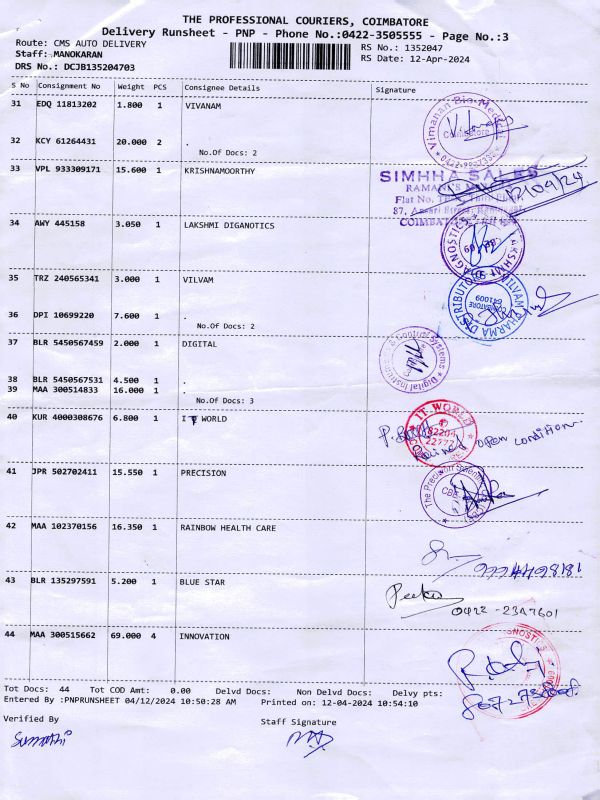 THE PROFESSIONAL COURIERS, COIMBATORE
Delivery Runsheet - PNP - Phone No.:0422-3505555 - Page No.:3
Route: CMS AUTO DELIVERY
RS No.: 1352047
Staff: MANOKARAN
RS Date: 12-Apr-2024
DRS No.: DCJB135204703
S No Consignment No Weight PCS Consignee Details Signature
31 EDQ 11813202 1.800 1 VIVANAM
32 KCY 61264431 20.000 2 .
No.Of Docs: 2
33 VPL 933309171 15.600 1 KRISHNAMOORTHY
SIMHHA SALES
12/04/24
34 AWY 445158 3.050 1 LAKSHMI DIGANOTICS
35 TRZ 240565341 3.000 1 VILVAM
36 DPI 10699220 7.600 1 .
No.Of Docs: 2
37 BLR 5450567459 2.000 1 DIGITAL
38 BLR 5450567531 4.500 1 .
39 MAA 300514833 16.000 1 .
No.Of Docs: 3
40 KUR 4000308676 6.800 1 I T WORLD
IT WORLD
open condition.
41 JPR 502702411 15.550 1 PRECISION
42 MAA 102370156 16.350 1 RAINBOW HEALTH CARE
43 BLR 135297591 5.200 1 BLUE STAR
0422-2347601
44 MAA 300515662 69.000 4 INNOVATION
Tot Docs: 44 Tot COD Amt: 0.00 Delvd Docs: Non Delvd Docs: Delvy pts:
Entered By :PNPRUNSHEET 04/12/2024 10:50:28 AM Printed on: 12-04-2024 10:54:10
Verified By Staff Signature